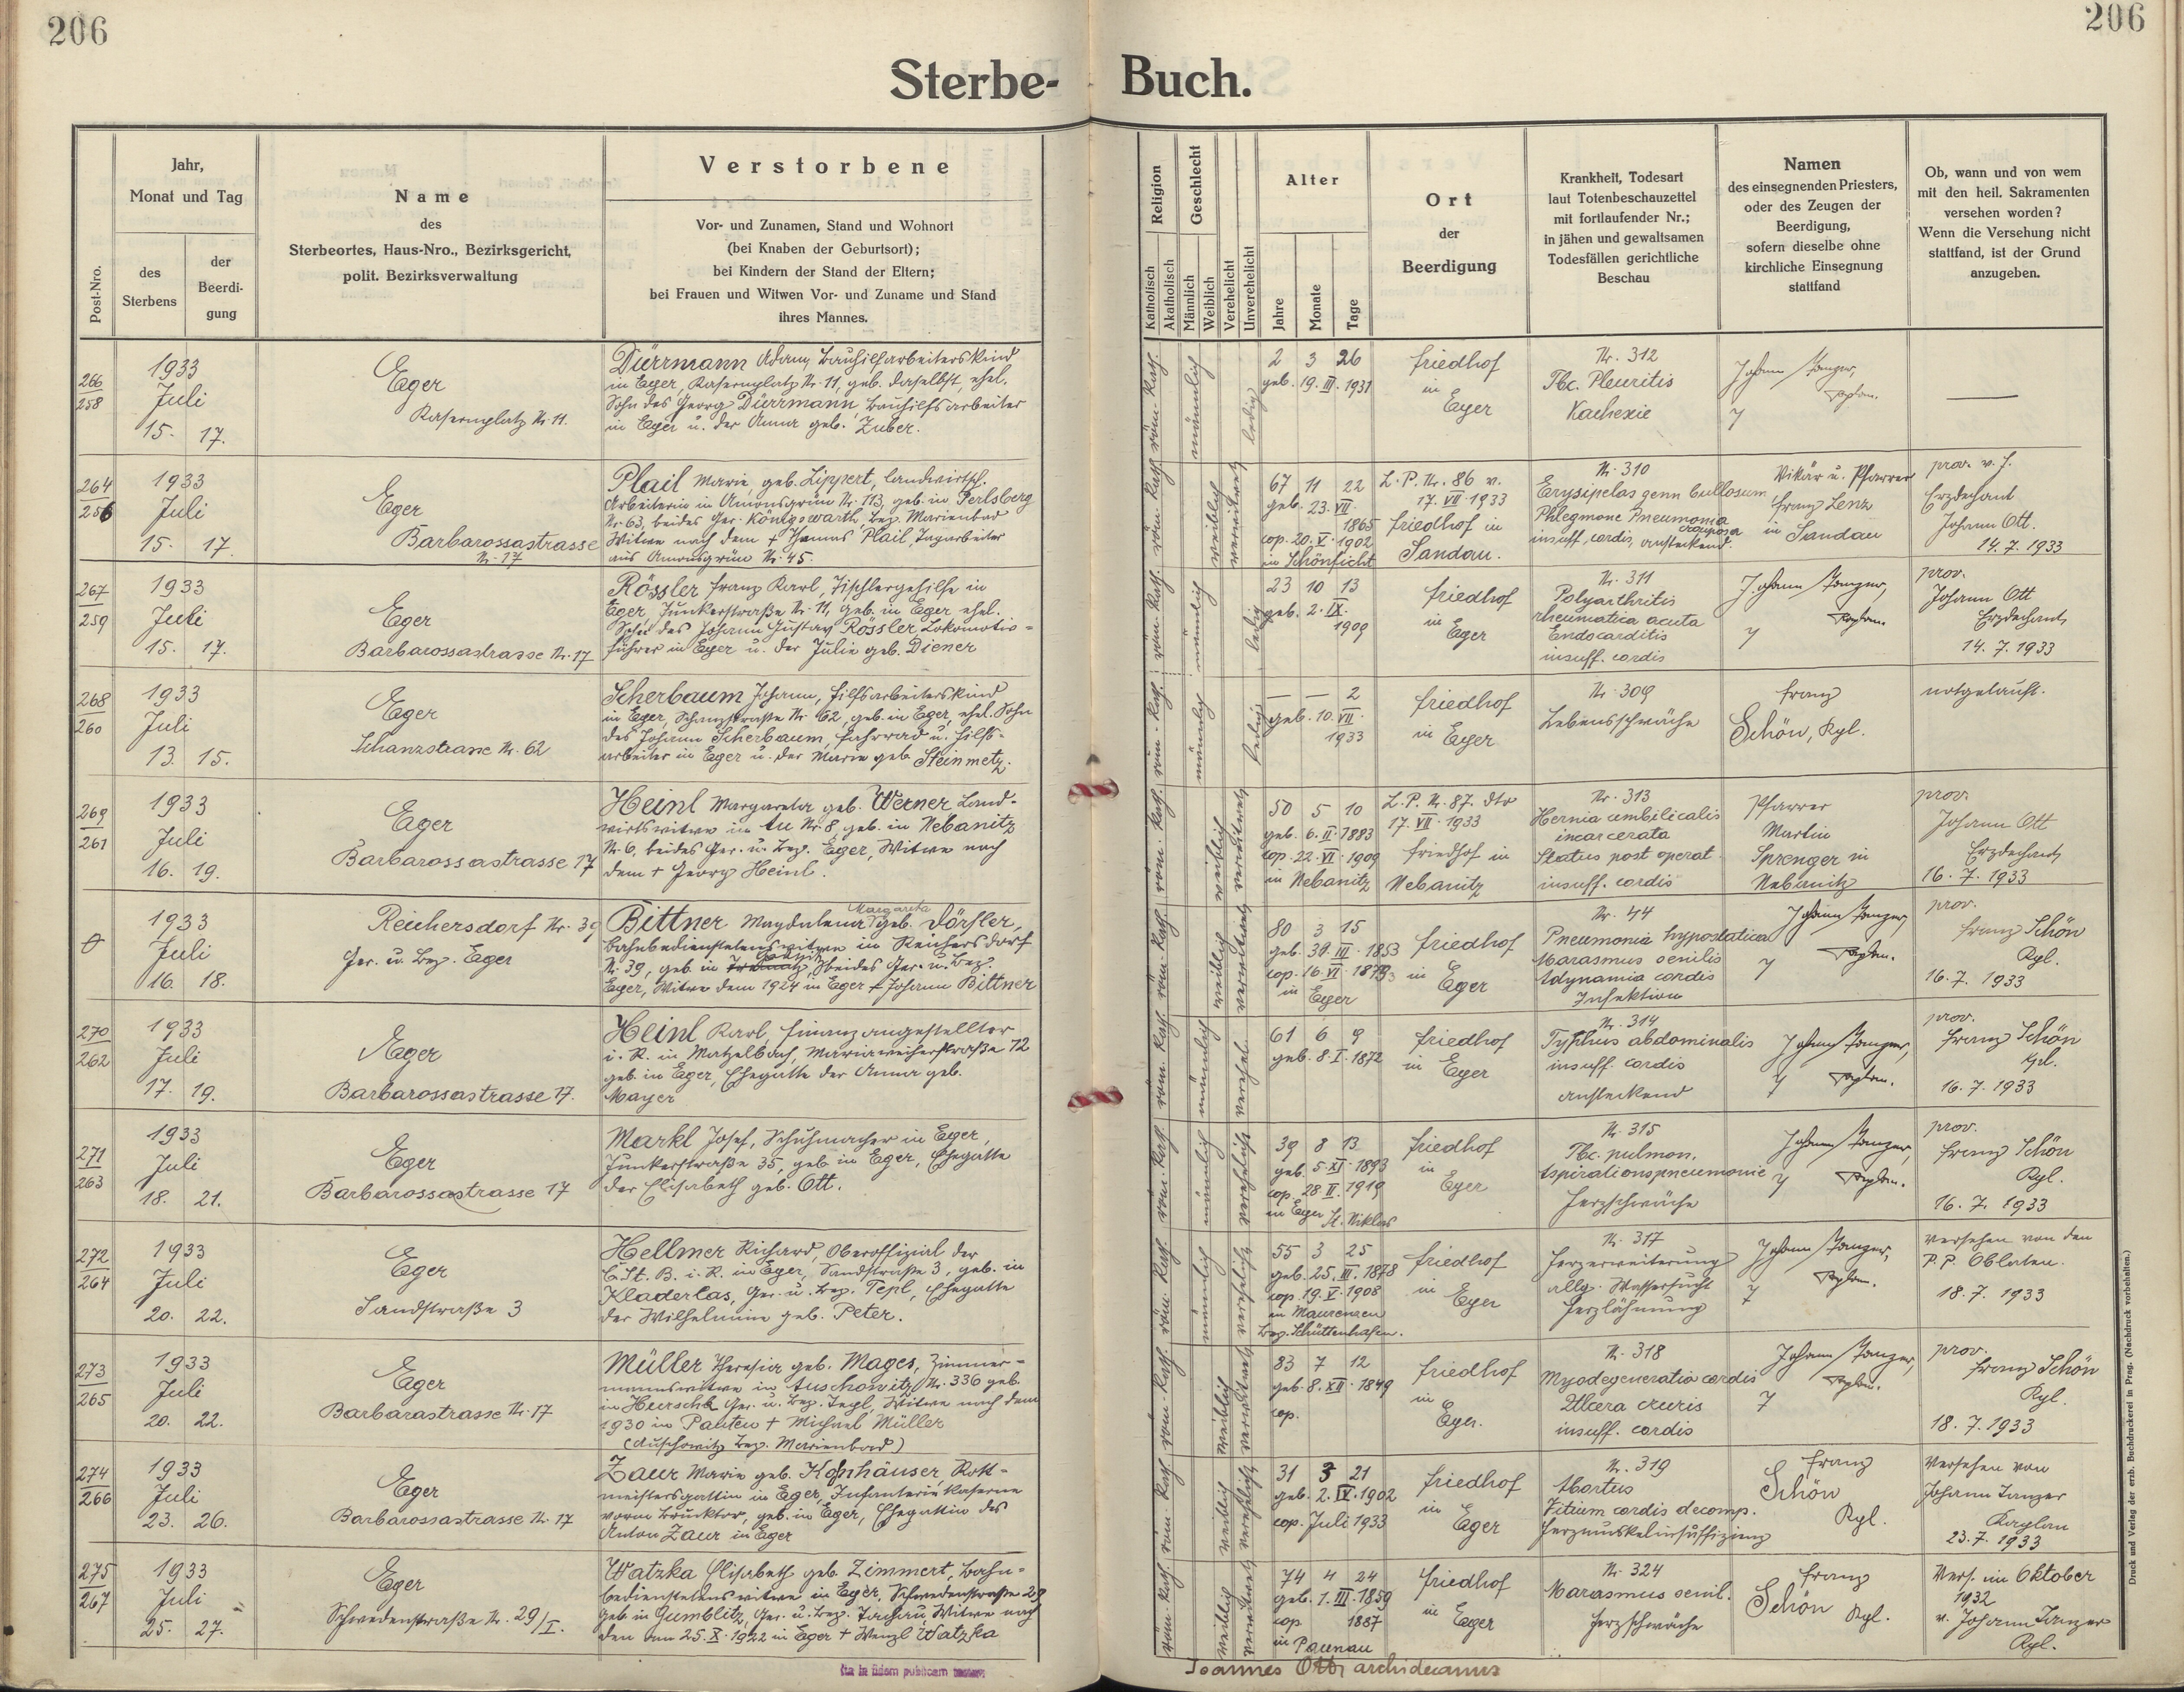 206
206
Sterbe- Buch.
Post-Nro.
Jahr,
Monat und Tag
des
Sterbens
der
Beerdi-
gung
Name
des
Sterbeortes, Haus-Nro., Bezirksgericht,
polit. Bezirksverwaltung
Verstorbene
Vor- und Zunamen, Stand und Wohnort
(bei Knaben der Geburtsort);
bei Kindern der Stand der Eltern;
bei Frauen und Witwen Vor- und Zuname und Stand
ihres Mannes.
Religion
Katholisch
Akatholisch
Geschlecht
Männlich
Weiblich
Verehelicht
Unverehelicht
Alter
Jahre
Monate
Tage
Ort
der
Beerdigung
Krankheit, Todesart
laut Totenbeschauzettel
mit fortlaufender Nr.;
in jähen und gewaltsamen
Todesfällen gerichtliche
Beschau
Namen
des einsegnenden Priesters,
oder des Zeugen der
Beerdigung,
sofern dieselbe ohne
kirchliche Einsegnung
stattfand
Ob, wann und von wem
mit den heil. Sakramenten
versehen worden?
Wenn die Versehung nicht
stattfand, ist der Grund
anzugeben.
266
258
1933
Juli
15. 17.
Eger
Kasernplatz Nr. 11.
Dürrmann Adam, Bauhilfsarbeiterskind
in Eger, Kasernplatz Nr. 11, geb. daselbst, ehel.
Sohn des Georg Dürrmann, Bauhilfsarbeiter
in Eger u. der Anna geb. Zuber.
röm. kath.
männlich
ledig
2 3 26
geb. 19. III. 1931
Friedhof
in
Eger
Nr. 312
Tbc. Pleuritis
Kachexie
Johann Tanzer,
Kaplan.
264
256
1933
Juli
15. 17.
Eger
Barbarossastrasse
Nr. 17
Plail Marie, geb. Lippert, Landwirtsch.
Arbeiterin in Amonsgrün Nr. 113, geb. in Perlsberg
Nr. 63, beides Ger. Königswarth, Bez. Marienbad
Witwe nach dem † Plail, Tagarbeiter
aus Amonsgrün Nr. 45.
röm. kath.
weiblich
verwitwet
67 11 22
geb. 23. VII.
1865
cop. 20. V. 1902
in Schönficht
L. P. Nr. 86 v.
17. VII. 1933
Friedhof in
Sandau.
Nr. 310
Erysipelas genn bullosum
Phlegmone Pneumonia
crouposa
insuff. cordis, ansteckend.
Vikär u. Pfarrer
Franz Lenz
in Sandau
prov. v. H.
Erzdechant
Johann Ott.
14. 7. 1933
267
259
1933
Juli
15. 17.
Eger
Barbarossastrasse Nr. 17
Rössler Franz Karl, Tischlergehilfe in
Eger, Junkerstraße Nr. 11, geb. in Eger, ehel.
Sohn des Johann Gustav Rössler, Lokomotiv-
führer in Eger u. der Julie geb. Diener
röm. kath.
männlich
ledig
23 10 13
geb. 2. IX.
1909
Friedhof
in
Eger
Nr. 311
Polyarthritis
rheumatica acuta
Endocarditis
insuff. cordis
Johann Tanzer,
Kaplan.
prov.
Johann Ott
Erzdechant
14. 7. 1933
268
260
1933
Juli
13. 15.
Eger
Schanzstrasse Nr. 62
Scherbaum Johann, Hilfsarbeiterskind
in Eger, Schanzstraße Nr. 62, geb. in Eger, ehel. Sohn
des Johann Scherbaum, Fahrrad u. Hilfs-
arbeiter in Eger u. der Marie geb. Steinmetz.
röm. kath.
männlich
ledig
— — 2
geb. 10. VII.
1933
Friedhof
in Eger
Nr. 309
Lebensschwäche
Franz
Schön, Kpl.
notgetauft.
269
261
1933
Juli
16. 19.
Eger
Barbarossastrasse 17
Heinl Margareta geb. Werner Land-
wirtswitwe in Au Nr. 8, geb. in Nebanitz
Nr. 6, beides Ger. u. Bez. Eger, Witwe nach
dem † Georg Heinl.
röm. kath.
weiblich
verwitwet
50 5 10
geb. 6. II. 1883
cop. 22. VI. 1909
in Nebanitz
L. P. Nr. 87. dto
17. VII. 1933
Friedhof in
Nebanitz
Nr. 313
Hernia umbilicalis
incarcerata
Status post operat.
insuff. cordis
Pfarrer
Martin
Sprenger in
Nebanitz
prov.
Johann Ott
Erzdechant
16. 7. 1933
1933
Juli
16. 18.
Reichersdorf Nr. 39
Ger. u. Bez. Eger
Margareta
Bittner Magdalena geb. Dörfler,
Bahnbedienstetenswitwe in Reichersdorf
Nr. 39, geb. in beides Ger. u. Bez.
Eger, Witwe dem 1924 in Eger † Johann Bittner
röm. kath.
weiblich
verwitwet
80 3 15
geb. 31. III. 1853
cop. 16. VI. 1873
in Eger
Friedhof
in
Eger
Nr. 44
Pneumonia hypostatica
Marasmus senilis
Adynamia cordis
Infektion
Johann Tanzer,
Kaplan.
prov.
Franz Schön
Kpl.
16. 7. 1933
270
262
1933
Juli
17. 19.
Eger
Barbarossastrasse 17.
Heinl Karl, Finanzangestellter
i. R. in Matzelbach, Mariaweiherstraße 72
geb. in Eger, Ehegatte der Anna geb.
Mayer
röm. kath.
männlich
verehel.
61 6 9
geb. 8. I. 1872
Friedhof
in Eger
Nr. 314
Typhus abdominalis
insuff. cordis
ansteckend
Johann Tanzer,
Kaplan.
prov.
Franz Schön
Kpl.
16. 7. 1933
271
263
1933
Juli
18. 21.
Eger
Barbarossastrasse 17
Markl Josef, Schuhmacher in Eger,
Junkerstraße 35, geb. in Eger, Ehegatte
der Elisabeth geb. Ott.
röm. kath.
männlich
verehelicht
39 8 13
geb. 5. XI. 1893
cop. 28. II. 1919
in Eger St. Niklas
Friedhof
in
Eger
Nr. 315
Tbc. pulmon.
Aspirationspneumonie
Herzschwäche
Johann Tanzer,
Kaplan.
prov.
Franz Schön
Kpl.
16. 7. 1933
272
264
1933
Juli
20. 22.
Eger
Sandstraße 3
Hellmer Richard, Oberoffizial der
Č. St. B. i. R. in Eger, Sandstraße 3, geb. in
Kladerlas, Ger. u. Bez. Tepl, Ehegatte
der Wilhelmine geb. Peter.
röm. kath.
männlich
verehelicht
55 3 25
geb. 25. III. 1878
cop. 19. V. 1908
in Maurenzen
Bez. Schüttenhofen.
Friedhof
in
Eger
Nr. 317
Herzerweiterung
allg. Wassersucht
Herzlähmung
Johann Tanzer,
Kaplan.
versehen von den
P. P. Oblaten.
18. 7. 1933
273
265
1933
Juli
20. 22.
Eger
Barbarastrasse Nr. 17
Müller Theresia geb. Mages, Zimmer-
mannswitwe in Auschowitz Nr. 336 geb.
in Hurschk Ger. u. Bez. Tepl, Witwe nach dem
1930 in Panten † Michael Müller
(Auschowitz Bez. Marienbad)
röm. kath.
weiblich
verwitwet
83 7 12
geb. 8. XII. 1849
cop.
Friedhof
in
Eger.
Nr. 318
Myodegeneratio cordis
Ulcera cruris
insuff. cordis
Johann Tanzer,
Kaplan.
prov.
Franz Schön
Kpl.
18. 7. 1933
274
266
1933
Juli
23. 26.
Eger
Barbarossastrasse Nr. 17
Zaur Marie geb. Konhäuser, Rott-
meistersgattin in Eger, Infanteriekaserne
vorm Brucktor, geb. in Eger, Ehegattin des
Anton Zaur in Eger
röm. kath.
weiblich
verehelicht
31 3 21
geb. 2. IV. 1902
cop. Juli 1933
Friedhof
in
Eger
Nr. 319
Abortus
Vitium cordis decomp.
Herzmuskelinsuffizienz
Franz
Schön
Kpl.
Versehen von
Johann Tanzer
Kaplan
23. 7. 1933
275
267
1933
Juli
25. 27.
Eger
Schwedenstraße Nr. 29/I.
Watzka Elisabeth geb. Zimmert, Bahn-
bedienstetenswitwe in Eger, Schwedenstraße 29
geb. in Gumblitz, Ger. u. Bez. Tachau Witwe nach
den am 25. X. 1922 in Eger † Wenzl Watzka
röm. kath.
weiblich
verwitwet
74 4 24
geb. 1. III. 1859
cop. 1887
in Paunau
Friedhof
in
Eger
Nr. 324
Marasmus senil.
Herzschwäche
Franz
Schön Kpl.
Vers. im Oktober
1932
v. Johann Tanzer
Kpl.
Ita in fidem publicam testor:
Joannes Ott, archidecanus
Druck und Verlag der erzb. Buchdruckerei in Prag. (Nachdruck vorbehalten.)